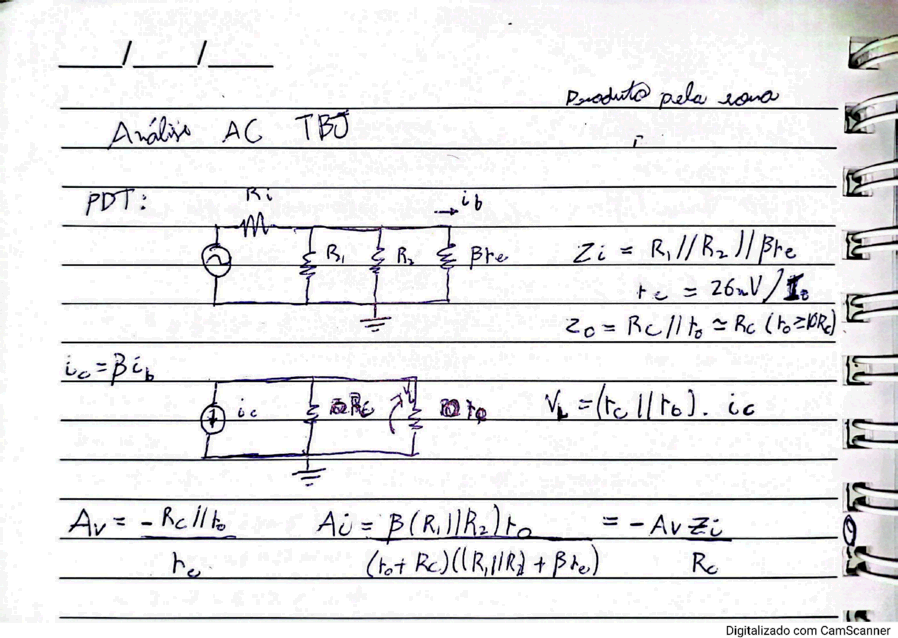 ___/___/___
Produto pela soma
Análise AC TBJ
PDT:
Ri
ib
R1 R2 βre
Zi = R1//R2//βre
re = 26mV/
Zo = Rc//ro ≃ Rc (ro≥10Rc)
ic = βib
ic Rc ro
VL = (rc//ro). ic
Av = -Rc//ro / re
Ai = β(R1//R2)ro / (ro+Rc)((R1//R2 + βre) = -Av Zi / Rc
Digitalizado com CamScanner